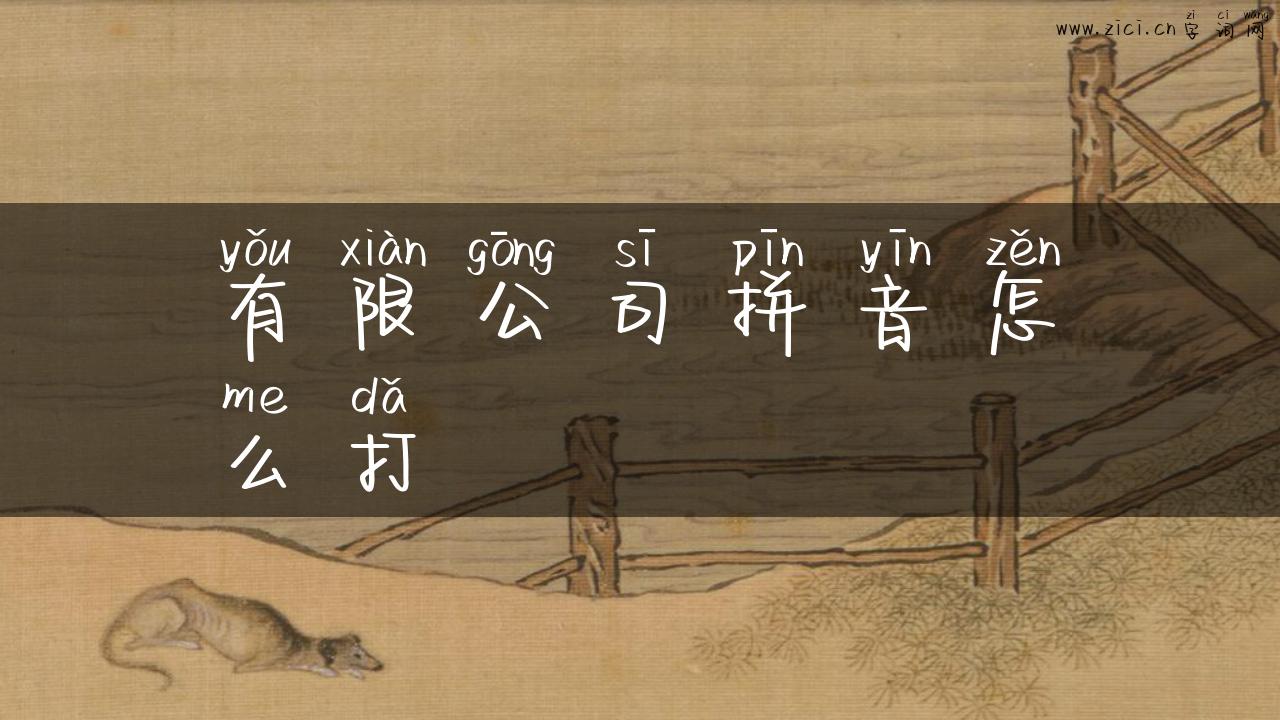 zì cí wǎng
www.zici.cn 字词网
yǒu xiàn gōng sī pīn yīn zěn
有限公司拼音怎
me dǎ
么打